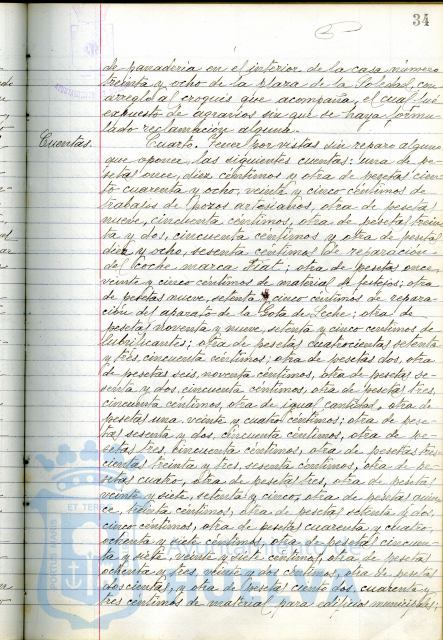 34
de panadería en el interior de la casa número
treinta y ocho de la plaza de la Soledad, con
arreglo al croquis que acompaña, el cual fué
expuesto de agravios sin que se haya formu-
lado reclamación alguna.
Cuentas. Cuarto. Tener por vistas sin reparo alguno
que oponer, las siguientes cuentas: una de pe-
setas once, diez céntimos y otra de pesetas cien-
to cuarenta y ocho, veinte y cinco céntimos de
trabajos de pozos artesianos, otra de pesetas
nueve, cincuenta céntimos, otra de pesetas trein-
ta y dos, cincuenta céntimos y otra de pesetas
diez y ocho, sesenta céntimos de reparación
del coche marca Fiat; otra de pesetas once,
veinte y cinco céntimos de material de festejos; otra
de pesetas nueve, setenta y cinco céntimos de repara-
ción del aparato de la Gota de Leche; otra de
pesetas noventa y nueve, setenta y cinco céntimos de
lubrificantes; otra de pesetas cuatrocientas setenta
y tres cincuenta céntimos; otra de pesetas dos, otra
de pesetas seis, noventa céntimos, otra de pesetas se-
senta y dos, cincuenta céntimos, otra de pesetas tres,
cincuenta céntimos, otra de igual cantidad, otra de
pesetas una, veinte y cuatro céntimos; otra de pese-
tas sesenta y dos, cincuenta céntimos, otra de pe-
setas tres, cincuenta céntimos, otra de pesetas tres-
cientas treinta y tres, sesenta céntimos, otra de pe-
setas cuatro, otra de pesetas tres, otra de pesetas
veinte y siete, setenta y cinco, otra de pesetas quin-
ce, treinta céntimos, otra de pesetas setenta y dos,
cinco céntimos, otra de pesetas cuarenta y cuatro,
ochenta y siete céntimos, otra de pesetas cincuen-
ta y siete, veinte y siete céntimos, otra de pesetas
ochenta y tres, veinte y dos céntimos, otra de pesetas
doscientas, y otra de pesetas ciento dos, cuarenta y
tres céntimos de material para edificios municipales;